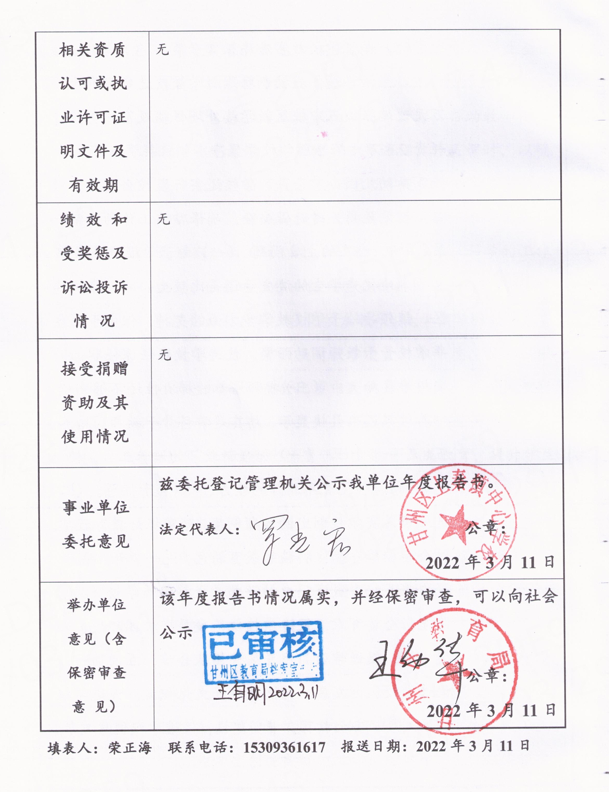 相关资质
认可或执
业许可证
明文件及
有效期
无
绩 效 和
受奖惩及
诉讼投诉
情 况
无
接受捐赠
资助及其
使用情况
无
事业单位
委托意见
兹委托登记管理机关公示我单位年度报告书。
法定代表人：
公章：
2022 年 3 月 11 日
举办单位
意见（含
保密审查
意 见）
该年度报告书情况属实，并经保密审查，可以向社会
公示
已审核
甘州区教育局档案室
2022.3.11
公章：
2022 年 3 月 11 日
填表人：荣正海 联系电话：15309361617 报送日期：2022 年 3 月 11 日